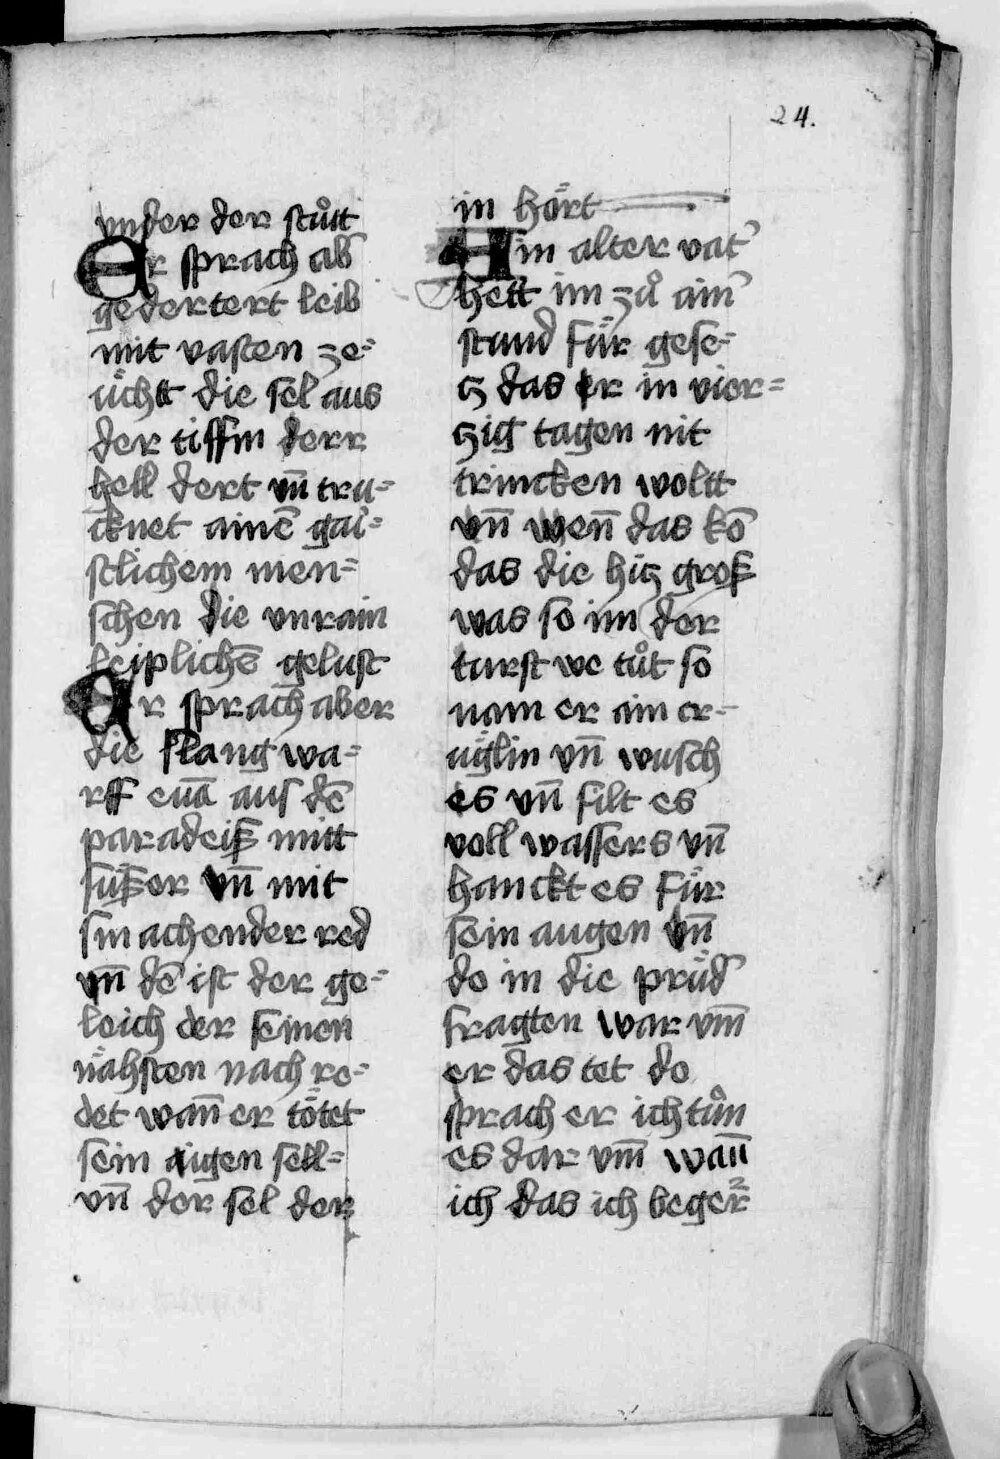 24.
vnder der stůtt
Er sprach ab̄
gedertert leib
mit vasten ze=
ücht die sel aus
der tiffin derr
hell dert vn̄ tru=
cknet ainē gai=
stlichem men=
schen die vnrain
leiplichē gelust
Er sprach aber
die slang wa=
rff euā aus dē
paradeiß mitt
süßer vn̄ mit
smachender red
vn̄ dē ist der ge=
leich der seinen
nähsten nach re=
det wan̄ er tötet
sein aigen sell=
vn̄ der sel der
in hört
Ain alter vat̄
hett im zů ain̄
stund für gese=
cz das er in vier=
czig tagen nit
trincken woltt
vn̄ wen̄ das kō
das die hicz groß
was so im der
turst we tůt so
nam er ain cr=
üglin vn̄ wusch
es vn̄ filt es
voll wassers vn̄
hanckt es für
sein augen vn̄
do in die prüd̄
fragten war vm̄
er das tet do
sprach er ich tůn
es dar vm̄ wan̄
ich das ich beger̄